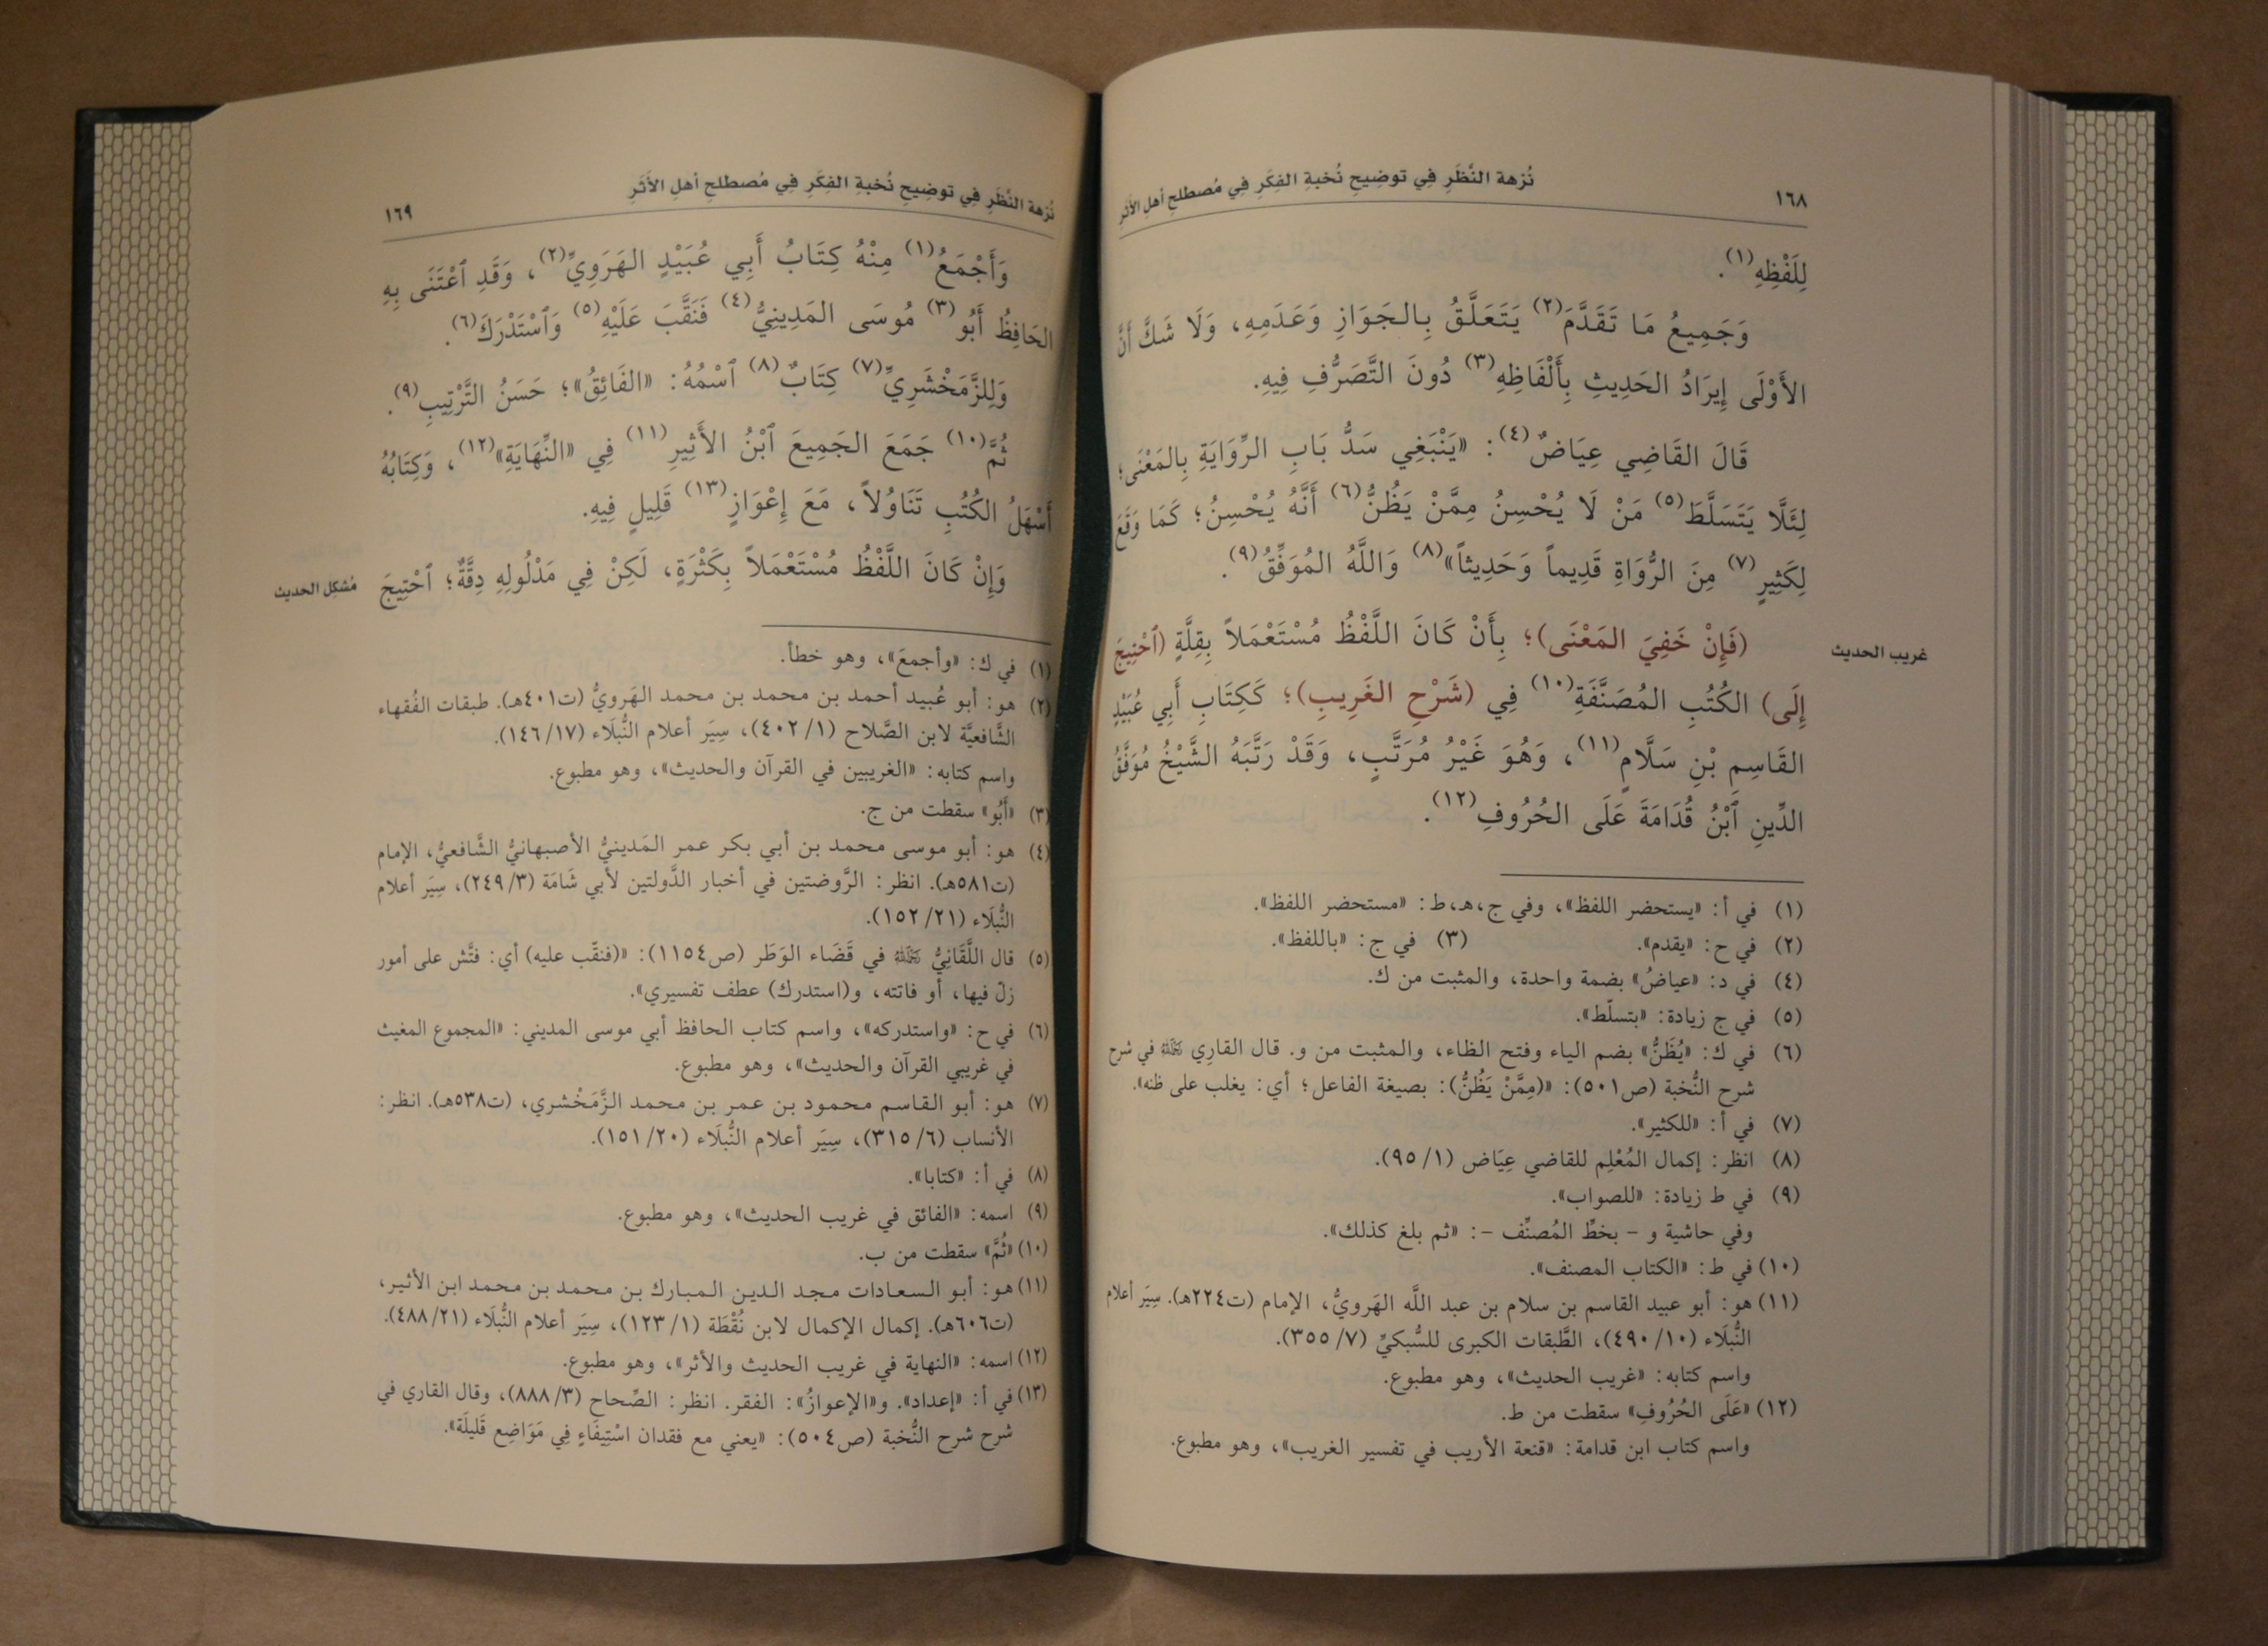 ١٦٨
نُزهة النَّظَرِ فِي توضِيحِ نُخبةِ الفِكَرِ فِي مُصطلحِ أهلِ الأَثَرِ
لِلَفْظِهِ(١).
وَجَمِيعُ مَا تَقَدَّمَ(٢) يَتَعَلَّقُ بِالجَوَازِ وَعَدَمِهِ، وَلَا شَكَّ أَنَّ
الأَوْلَى إِيرَادُ الحَدِيثِ بِأَلْفَاظِهِ(٣) دُونَ التَّصَرُّفِ فِيهِ.
قَالَ القَاضِي عِيَاضٌ(٤): «يَنْبَغِي سَدُّ بَابِ الرِّوَايَةِ بِالمَعْنَى؛
لِئَلَّا يَتَسَلَّطَ(٥) مَنْ لَا يُحْسِنُ مِمَّنْ يَظُنُّ(٦) أَنَّهُ يُحْسِنُ؛ كَمَا وَقَعَ
لِكَثِيرٍ(٧) مِنَ الرُّوَاةِ قَدِيماً وَحَدِيثاً»(٨) وَاللَّهُ المُوَفِّقُ(٩).
غريب الحديث
(فَإِنْ خَفِيَ المَعْنَى)؛ بِأَنْ كَانَ اللَّفْظُ مُسْتَعْمَلاً بِقِلَّةٍ (ٱحْتِيجَ
إِلَى) الكُتُبِ المُصَنَّفَةِ(١٠) فِي (شَرْحِ الغَرِيبِ)؛ كَكِتَابِ أَبِي عُبَيْدٍ
القَاسِمِ بْنِ سَلَّامٍ(١١)، وَهُوَ غَيْرُ مُرَتَّبٍ، وَقَدْ رَتَّبَهُ الشَّيْخُ مُوَفَّقُ
الدِّينِ ٱبْنُ قُدَامَةَ عَلَى الحُرُوفِ(١٢).
(١) في أ: «يستحضر اللفظ»، وفي ج،هـ،ط: «مستحضر اللفظ».
(٢) في ح: «يقدم». (٣) في ج: «باللفظ».
(٤) في د: «عياضُ» بضمة واحدة، والمثبت من ك.
(٥) في ج زيادة: «بتسلّط».
(٦) في ك: «يُظَنُّ» بضم الياء وفتح الظاء، والمثبت من و. قال القارِي ﵀ في شرح
شرح النُّخبة (ص٥٠١): «(مِمَّنْ يَظُنُّ): بصيغة الفاعل؛ أي: يغلب على ظنه».
(٧) في أ: «للكثير».
(٨) انظر: إكمال المُعْلِم للقاضي عِيَاض (١/ ٩٥).
(٩) في ط زيادة: «للصواب».
وفي حاشية و - بخطِّ المُصنِّف -: «ثم بلغ كذلك».
(١٠) في ط: «الكتاب المصنف».
(١١) هو: أبو عبيد القاسم بن سلام بن عبد اللَّه الهَرويُّ، الإمام (ت٢٢٤هـ). سِيَر أعلام
النُّبلَاء (١٠/ ٤٩٠)، الطَّبقات الكبرى للسُّبكيِّ (٧/ ٣٥٥).
واسم كتابه: «غريب الحديث»، وهو مطبوع.
(١٢) «عَلَى الحُرُوفِ» سقطت من ط.
واسم كتاب ابن قدامة: «قنعة الأريب في تفسير الغريب»، وهو مطبوع.
نُزهة النَّظَرِ فِي توضِيحِ نُخبةِ الفِكَرِ فِي مُصطلحِ أهلِ الأَثَرِ
١٦٩
وَأَجْمَعُ(١) مِنْهُ كِتَابُ أَبِي عُبَيْدٍ الهَرَوِيِّ(٢)، وَقَدِ ٱعْتَنَى بِهِ
الحَافِظُ أَبُو(٣) مُوسَى المَدِينِيُّ(٤) فَنَقَّبَ عَلَيْهِ(٥) وَٱسْتَدْرَكَ(٦).
وَلِلزَّمَخْشَرِيِّ(٧) كِتَابٌ(٨) ٱسْمُهُ: «الفَائِقُ»؛ حَسَنُ التَّرْتِيبِ(٩).
ثُمَّ(١٠) جَمَعَ الجَمِيعَ ٱبْنُ الأَثِيرِ(١١) فِي «النِّهَايَةِ»(١٢)، وَكِتَابُهُ
أَسْهَلُ الكُتُبِ تَنَاوُلاً، مَعَ إِعْوَازٍ(١٣) قَلِيلٍ فِيهِ.
وَإِنْ كَانَ اللَّفْظُ مُسْتَعْمَلاً بِكَثْرَةٍ، لَكِنْ فِي مَدْلُولِهِ دِقَّةٌ؛ ٱحْتِيجَ
مُشكِل الحديث
(١) في ك: «وأجمعَ»، وهو خطأ.
(٢) هو: أبو عُبيد أحمد بن محمد بن محمد الهَرويُّ (ت٤٠١هـ). طبقات الفُقهاء
الشَّافعيَّة لابن الصَّلاح (١/ ٤٠٢)، سِيَر أعلام النُّبلَاء (١٧/ ١٤٦).
واسم كتابه: «الغريبين في القرآن والحديث»، وهو مطبوع.
(٣) «أَبُو» سقطت من ج.
(٤) هو: أبو موسى محمد بن أبي بكر عمر المَدينيُّ الأصبهانيُّ الشَّافعيُّ، الإمام
(ت٥٨١هـ). انظر: الرَّوضتين في أخبار الدَّولتين لأبي شَامَة (٣/ ٢٤٩)، سِيَر أعلام
النُّبلَاء (٢١/ ١٥٢).
(٥) قال اللَّقَانِيُّ ﵀ في قَضَاء الوَطَر (ص١١٥٤): «(فنقّب عليه) أي: فتَّش على أمور
زلّ فيها، أو فاتته، و(استدرك) عطف تفسيري».
(٦) في ح: «واستدركه»، واسم كتاب الحافظ أبي موسى المديني: «المجموع المغيث
في غريبي القرآن والحديث»، وهو مطبوع.
(٧) هو: أبو القاسم محمود بن عمر بن محمد الزَّمَخْشري، (ت٥٣٨هـ). انظر:
الأنساب (٦/ ٣١٥)، سِيَر أعلام النُّبلَاء (٢٠/ ١٥١).
(٨) في أ: «كتابا».
(٩) اسمه: «الفائق في غريب الحديث»، وهو مطبوع.
(١٠) «ثُمَّ» سقطت من ب.
(١١) هو: أبو السعادات مجد الدين المبارك بن محمد بن محمد ابن الأثير،
(ت٦٠٦هـ). إكمال الإكمال لابن نُقْطَة (١/ ١٢٣)، سِيَر أعلام النُّبلَاء (٢١/ ٤٨٨).
(١٢) اسمه: «النهاية في غريب الحديث والأثر»، وهو مطبوع.
(١٣) في أ: «إعداد». و«الإعوازُ»: الفقر. انظر: الصِّحاح (٣/ ٨٨٨)، وقال القاري في
شرح شرح النُّخبة (ص٥٠٤): «يعني مع فقدان اسْتِيفَاءٍ فِي مَوَاضِع قَلِيلَة».